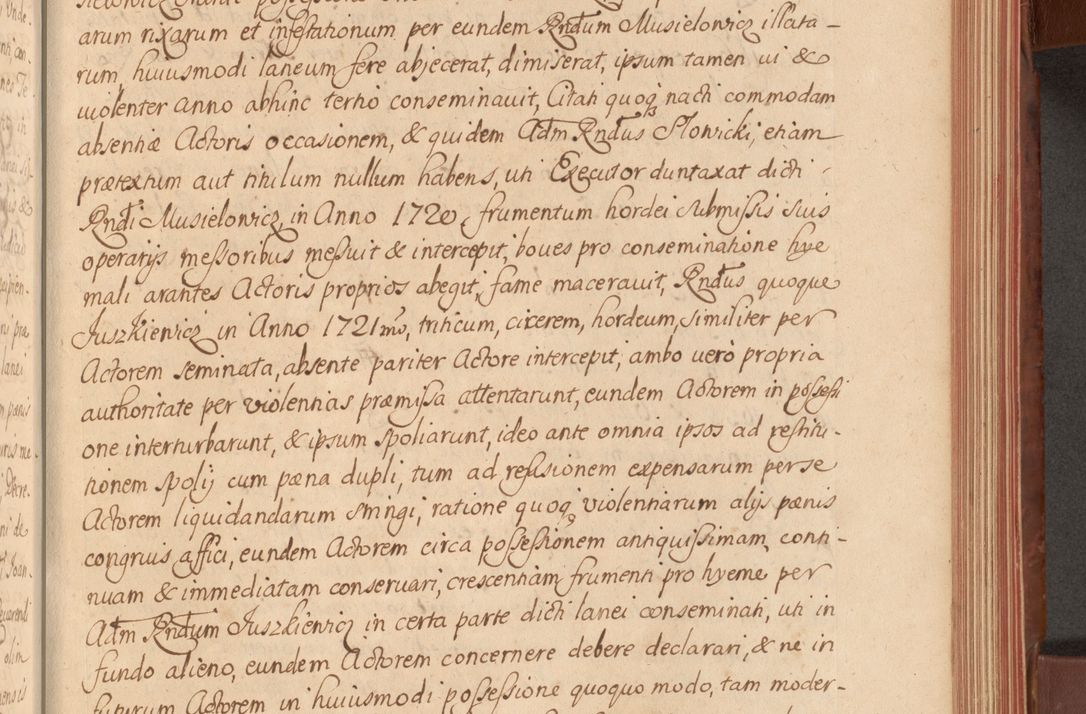 arum rixarum et infestationum per eundem Rndum Musielowicz illata-
rum, huiusmodi laneum fere abjecerat, dimiserat, ipsum tamen vi &
violenter anno abhinc tertio conseminavit, Citati quoq3 nacti commodam
absentiæ Actoris occasionem, & quidem Adm Rndus Słowicki, etiam
prætextum aut titulum nullum habens, uti Executor duntaxat dicti
Rndi Musielowicz in Anno 1720 frumentum hordei submissis suis
operarijs messoribus messuit & intercepit, boves pro conseminatione hye
mali arantes Actoris proprios abegit, fame maceravit, Rndus quoque
Juszkiewicz in Anno 1721mo, triticum, cicerem, hordeum, similiter per
Actorem seminata, absente pariter Actore intercepit, ambo vero propria
authoritate per violentias præmissa attentarunt, eundem Actorem in possessi
one interturbarunt, & ipsum spoliarunt, ideo ante omnia ipsos ad restitu-
tionem spolij cum pæna dupli, tum ad refusionem expensarum per se
Actorem liquidandarum stringi, ratione quoq violentiarum alijs pænis
congruis affici, eundem Actorem circa possessionem antiquissimam, conti-
nuam & immediatam conservari, crescentiam frumenti pro hyeme per
Adm Rndum Juszkiewicz in certa parte dicti lanei conseminati, uti in
fundo alieno, eundem Actorem concernere debere declarari, & ne in
futurum Actorem in huiusmodi possessione quoquo modo, tam moder-